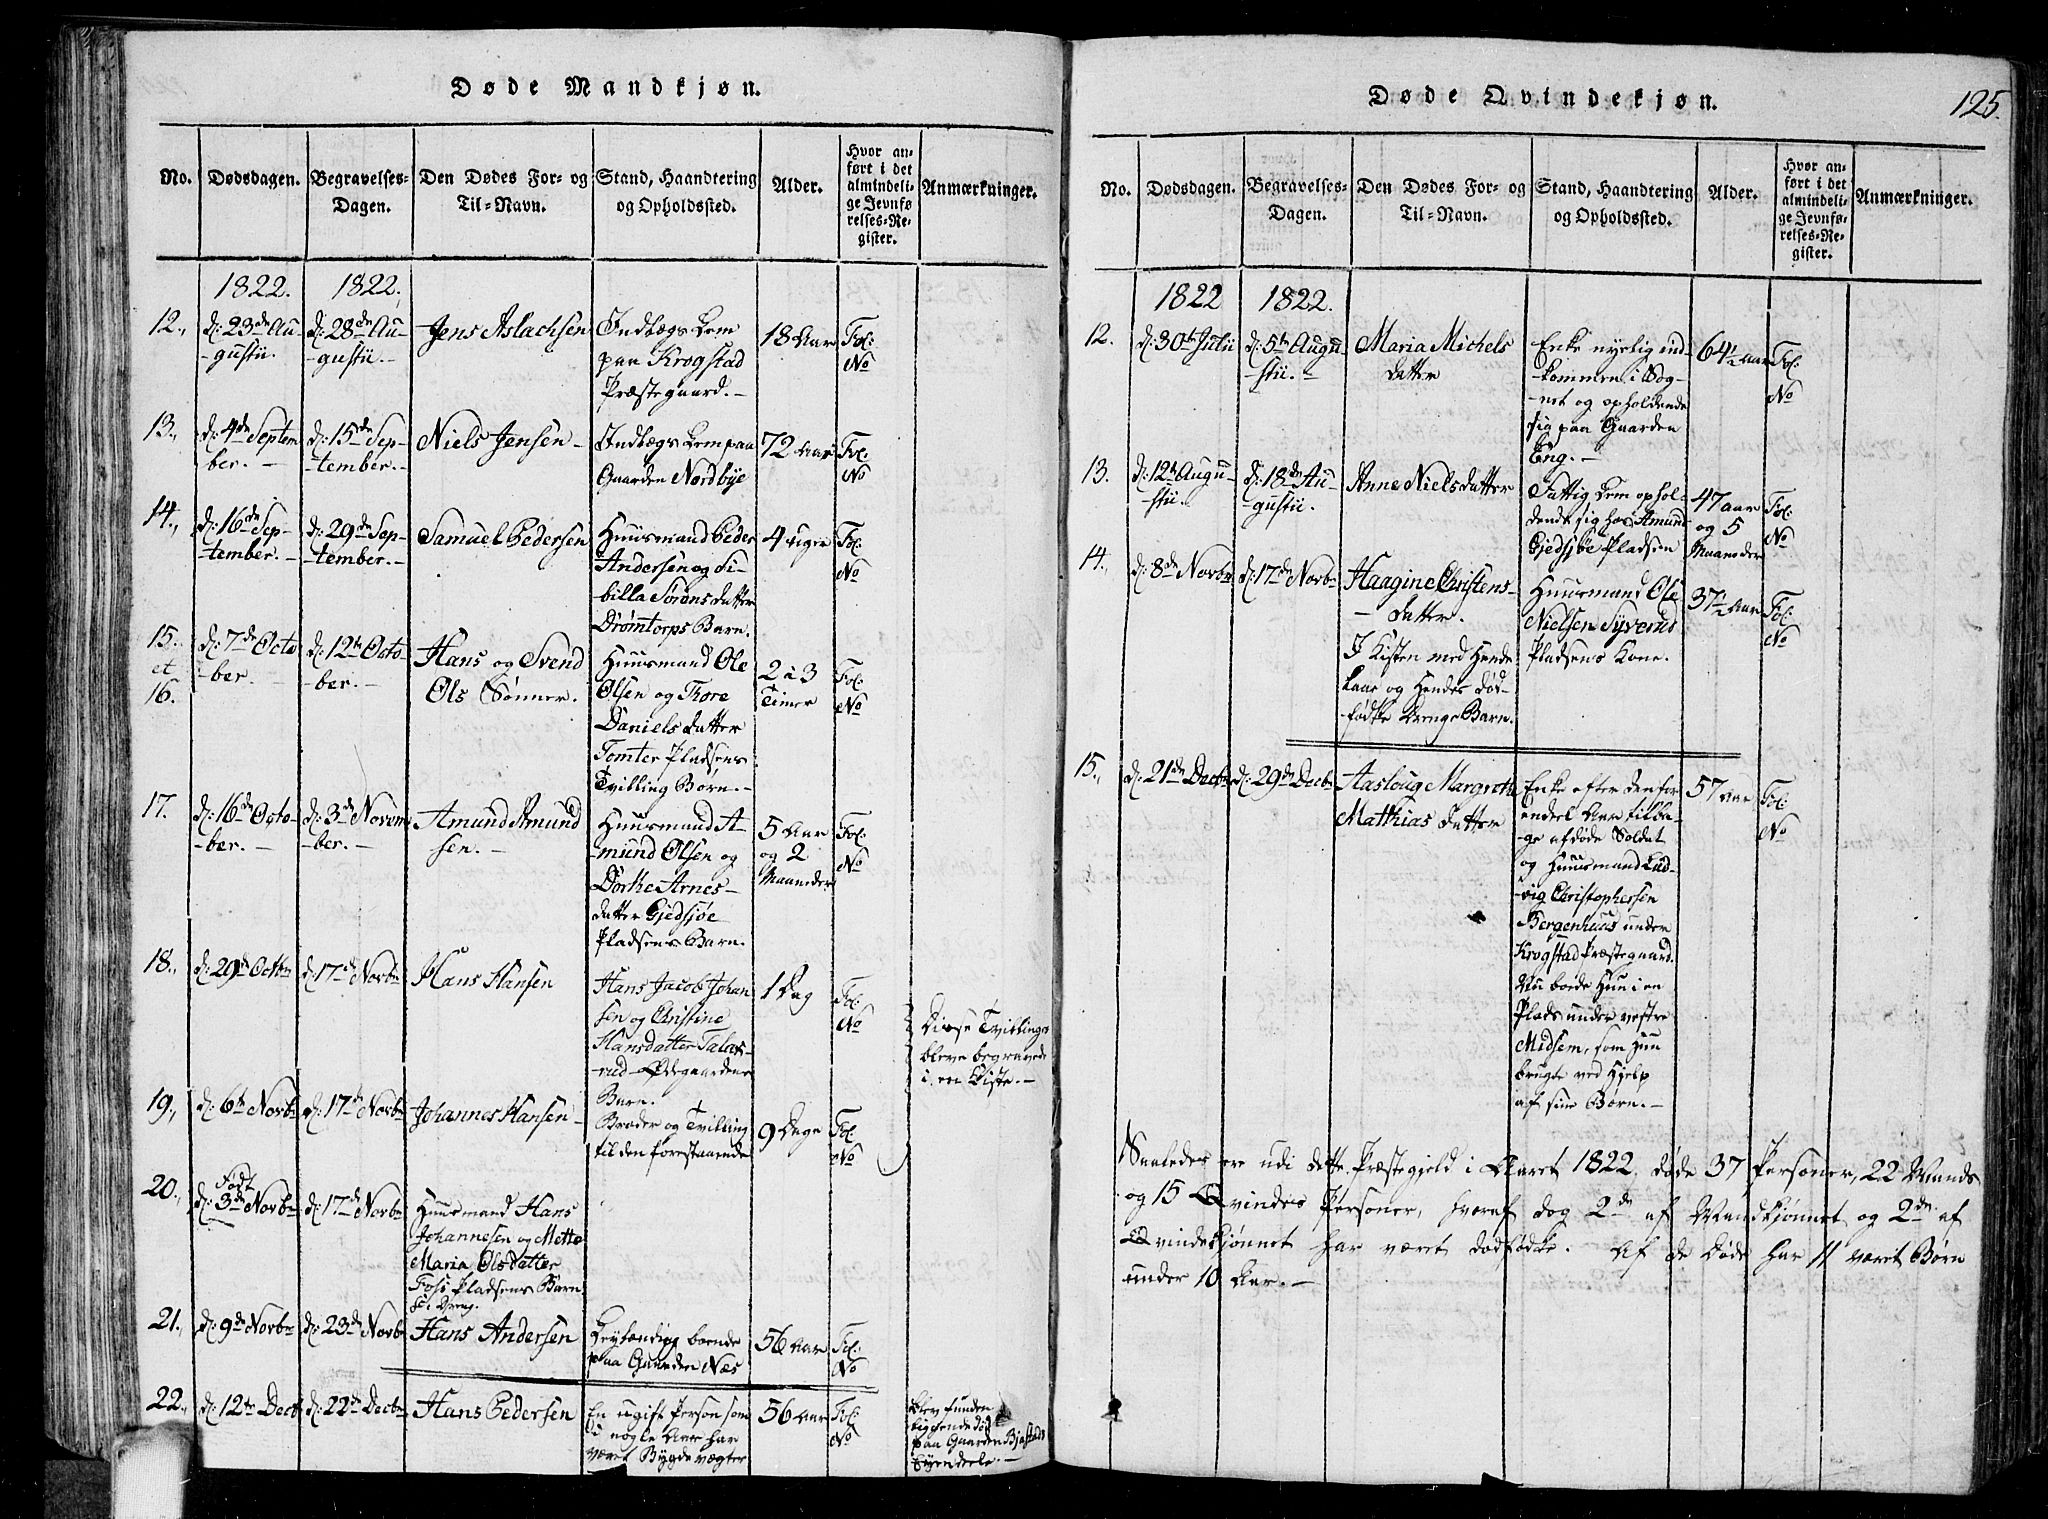 Døde Mandkjøn.
No.
Dødsdagen.
Begravelses-
Dagen.
Den Dødes For- og
Til-Navn.
Stand, Haandtering
og Opholdssted.
Alder.
Hvor an-
ført i det
almindeli-
ge Jevnfø-
relses-Re-
gister.
Anmærkninger.
1822.
1822.
12.,
d: 23de Au-
-gustii.
d: 28de Au-
-gustii.-
Jens Aslachsen
Indlægs Lem
paa Krogstad
Præstegaard.-
18 Aar
Fol:
No
13.,
d: 4de Septem
ber.-
d: 15de Sep-
-tember.-
Niels Jensen-
Indlægs Lem paa
Gaarden Nordbye
72 Aar
Fol:
No
14.,
d: 16de Sep-
-tember.-
d: 29de Sep-
-tember.-
Samuel Pedersen
Huusmand Peder
Andersen og Si-
-billa Sørensdatter
Drømtorps Barn.
4 uger
Fol:
No
15.
et
16.
d: 7de Octo
-ber.-
d: 12te Octo-
-ber.-
Hans og Svend
Ols Sønner.
Huusmand Ole
Olsen og Thore
Daniels datter
Tomter Pladsens
Tvilling Børn.-
2 à 3
Timer
Fol:
No
17.
d: 16de Octo-
-ber.-
d: 3de Novem
-ber.-
Amund Amund
sen.-
Huusmand A-
-mund Olsen og
Dorthe Arnes-
datter Gjedsjøe
Pladsens Barn.
5 Aar
og 2
Maaneder
Fol:
No
18.,
d: 29de Octbr
d: 17de Novbr
Hans Hansen
Hans Jacob Johan
sen og Christine
Hansdatter Talas-
-rud-Ødegaardens
Barn.
1 Dag
Fol:
No
Disse Tvillinger
bleve begravede
i en Kiste.-
19.,
d: 6te Novbr
d: 17de Novbr
Johannes Hansen-
Broder og Tvilling
til den forestaaende
9 Dage
Fol:
No
20.,
Født
d: 3de Novbr
d: 17de Novbr
Huusmand Hans
Johannesen og Mette
Maria Olsdatter
Foss Pladsens Barn
Dreng.
21.,
d: 9de Novbr
d: 23de Novbr
Hans Andersen
Leylænding boende
paa Gaarden Næs
56 Aar
Fol:
No
22.,
d: 12te Decbr
d: 22de Decbr
Hans Pedersen
En ugift Person som
i nogle Aar har
været Bygdevægter
56 Aar
Fol:
No
Blev funden
liggende død
paa Gaarden Bjastads
Eyendeele.-
Døde Qvindekjøn.
125.
No.
Dødsdagen.
Begravelses-
Dagen.
Den Dødes For- og
Til-Navn.
Stand, Haandtering
og Opholdssted.
Alder.
Hvor an-
ført i det
almindeli-
ge Jevnfø-
relses-Re-
gister.
Anmærkninger.
1822
1822.
12.
d: 30te Julii
d: 5te Augu-
-stii.-
Maria Michels
datter
Enke nyelig ind-
-kommen i Sog-
-net og opholdende
sig paa Gaarden
Eng.-
64½ Aar
Fol:
No
13.
d: 12te Augu-
-stii.
d: 18de Au-
-gustii.
Anne Nielsdatter
Fattig Lem ophol-
dende sig hos Amund
Gjedsjøe Pladsen
47 Aar
og 5
Maaneder
Fol:
No
14.,
d: 8de Novbr
d: 17de Novbr
Haagine Christens-
-datter.
I Kisten med Hende
laae og Hendes død-
-fødte Drenge Barn.
Huusmand Ole
Nielsen Syverud
Pladsens Kone.
37½ Aar
Fol:
No
15.,
d: 21de Decbr
d: 29de Decbr
Aasloug Margrethe
Matthias datter
Enke efter den for
endeel Aar tilba-
-ge afdøde Soldat
og Huusmand Lud-
-vig Christophersen
Bergenhuus under
Krogstad Præstegaard.
Nu boede Hun i en
Plads under vestre
Midsem, som Hun
brugte ved Hjelp
af sine Børn.-
57 Aar
Fol:
No
Saaledes ere udi dette Præstegjeld i Aaret 1822, døde 37 Personer, 22 Mands
og 15 Qvindes Personer, hvoraf dog 2de af Mandkjønnet og 2de af
Qvindekjønnet har været dødfødte. Af de Døde har 11 været Børn
under 10 Aar.-